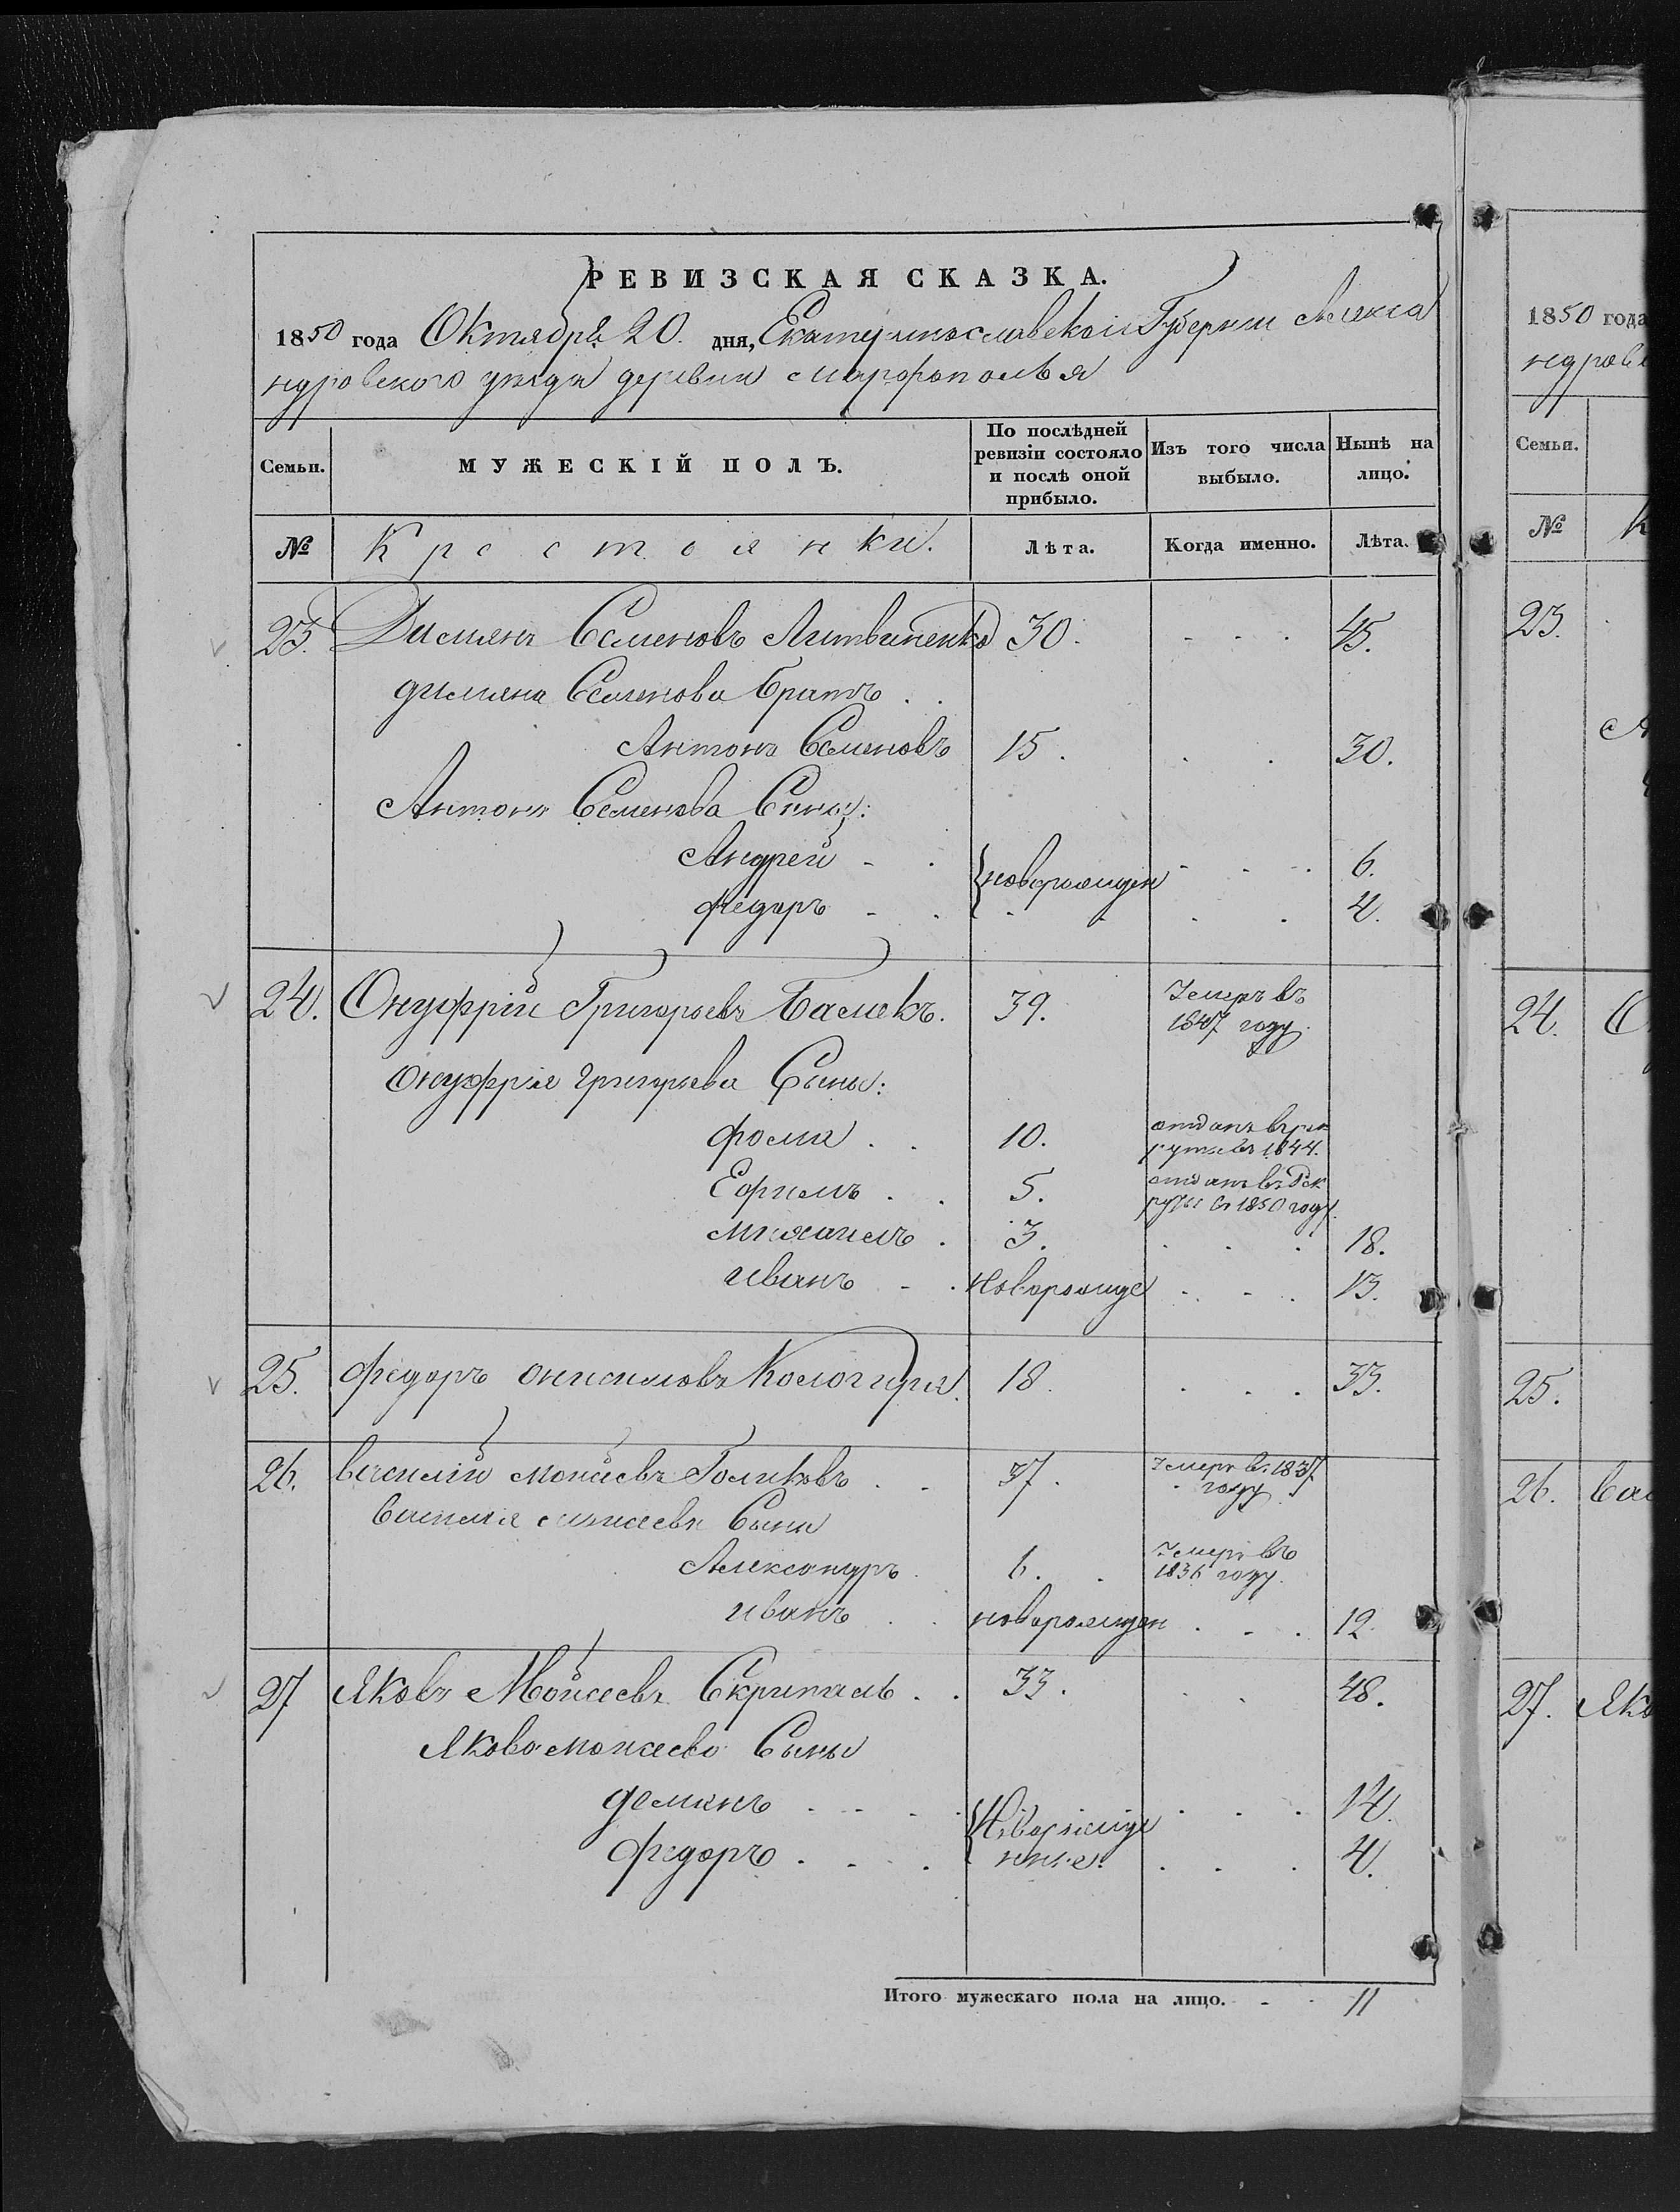 РЕВИЗСКАЯ СКАЗКА.
1850 года Октября 20. дня, Екатеринославской Губернии Алекса
ндровского уезда деревни Марфополья
Семьи.
МУЖЕСКІЙ ПОЛЪ.
По послѣдней ревизіи состояло и послѣ оной прибыло.
Изъ того числа выбыло.
Нынѣ на лицо.
№ Крестоянки. Лѣта. Когда именно. Лѣта.
23. Димиянъ Семеновъ Литвиненко 30. - - . 45.
димияна Семенова братъ . .
Антонъ Семеновъ 15. . . 30.
Антона Семенова Сыны:
Андрей - . новорожден - - . 6.
Федоръ - . - - . . 4.
24. Онуфрій Григорьевъ 39. Умеръ въ 1847 году.
Онуфрія Григорьева Сыны:
Фома . . 10. отданъ въ рекруты въ 1844.
Ефимъ . . 5. отданъ въ Рекруты въ 1850 году.
Михаилъ . 3. . . . 18.
Иванъ - . Новорожде . - . 13.
25. Федоръ Онисимовъ 18. . . . 33.
26. Василій Моисеевъ Голиковъ . . 37. Умеръ въ 1837 году.
Василия Моисеева Сыны
Александръ. 6. . Умеръ въ 1836 году.
Иванъ . . новорожден . . . 12.
27 Яковъ Мойсеевъ Скрипаль . . 33. . . 48.
Якова Моисеева Сыны
Демянъ . - - . Новорожде . . . 14.
Федоръ . . - . нные. . . . 4.
Итого мужескаго пола на лицо. - . 11
1850 года
ндровс
Семьи.
№ К
23.
24. О
25.
26. Вас
27. Яко